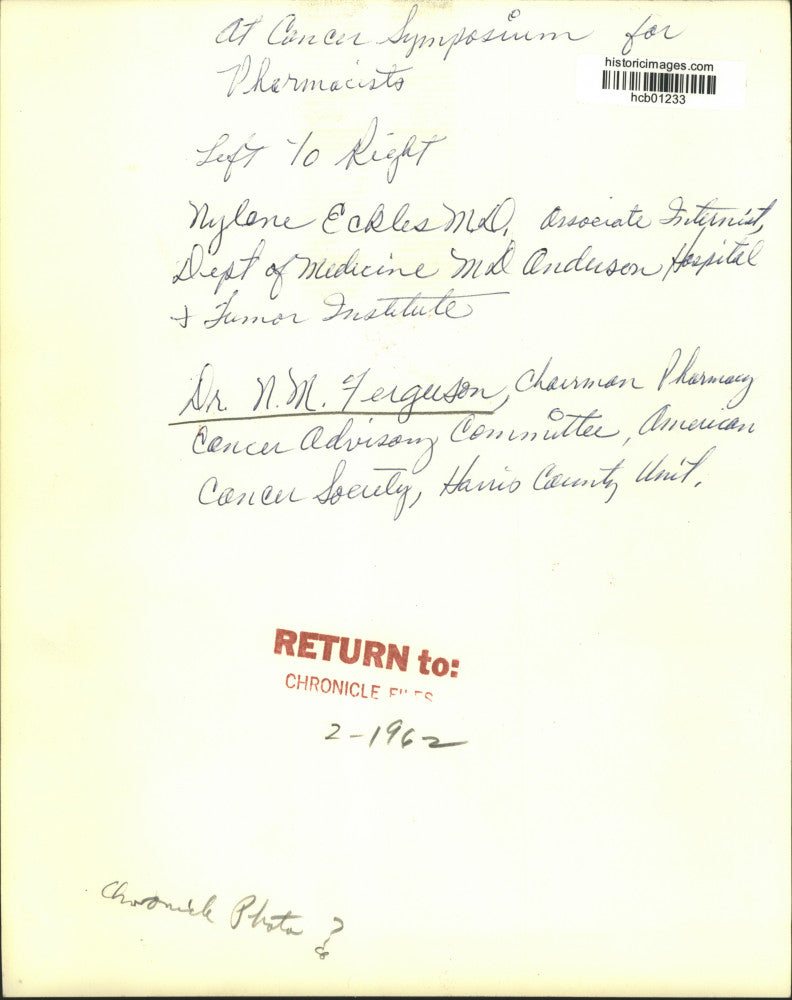 At Cancer Symposium for
Pharmacists
historicimages.com
hcb01233
Left to Right
Nylene Eckles MD, Associate Internist,
Dept of Medicine MD Anderson Hospital
+ Tumor Institute
Dr. N.M. Ferguson, Chairman Pharmacy
Cancer Advisory Committee, American
Cancer Society, Harris County Unit.
RETURN to:
CHRONICLE FILES
2-1962
Chronicle Photo ?